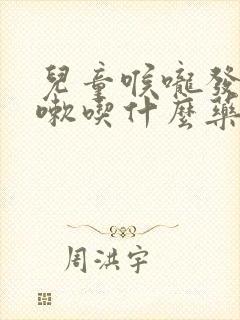 兒童喉嚨發
嗽喫什麼藥
周洪宇